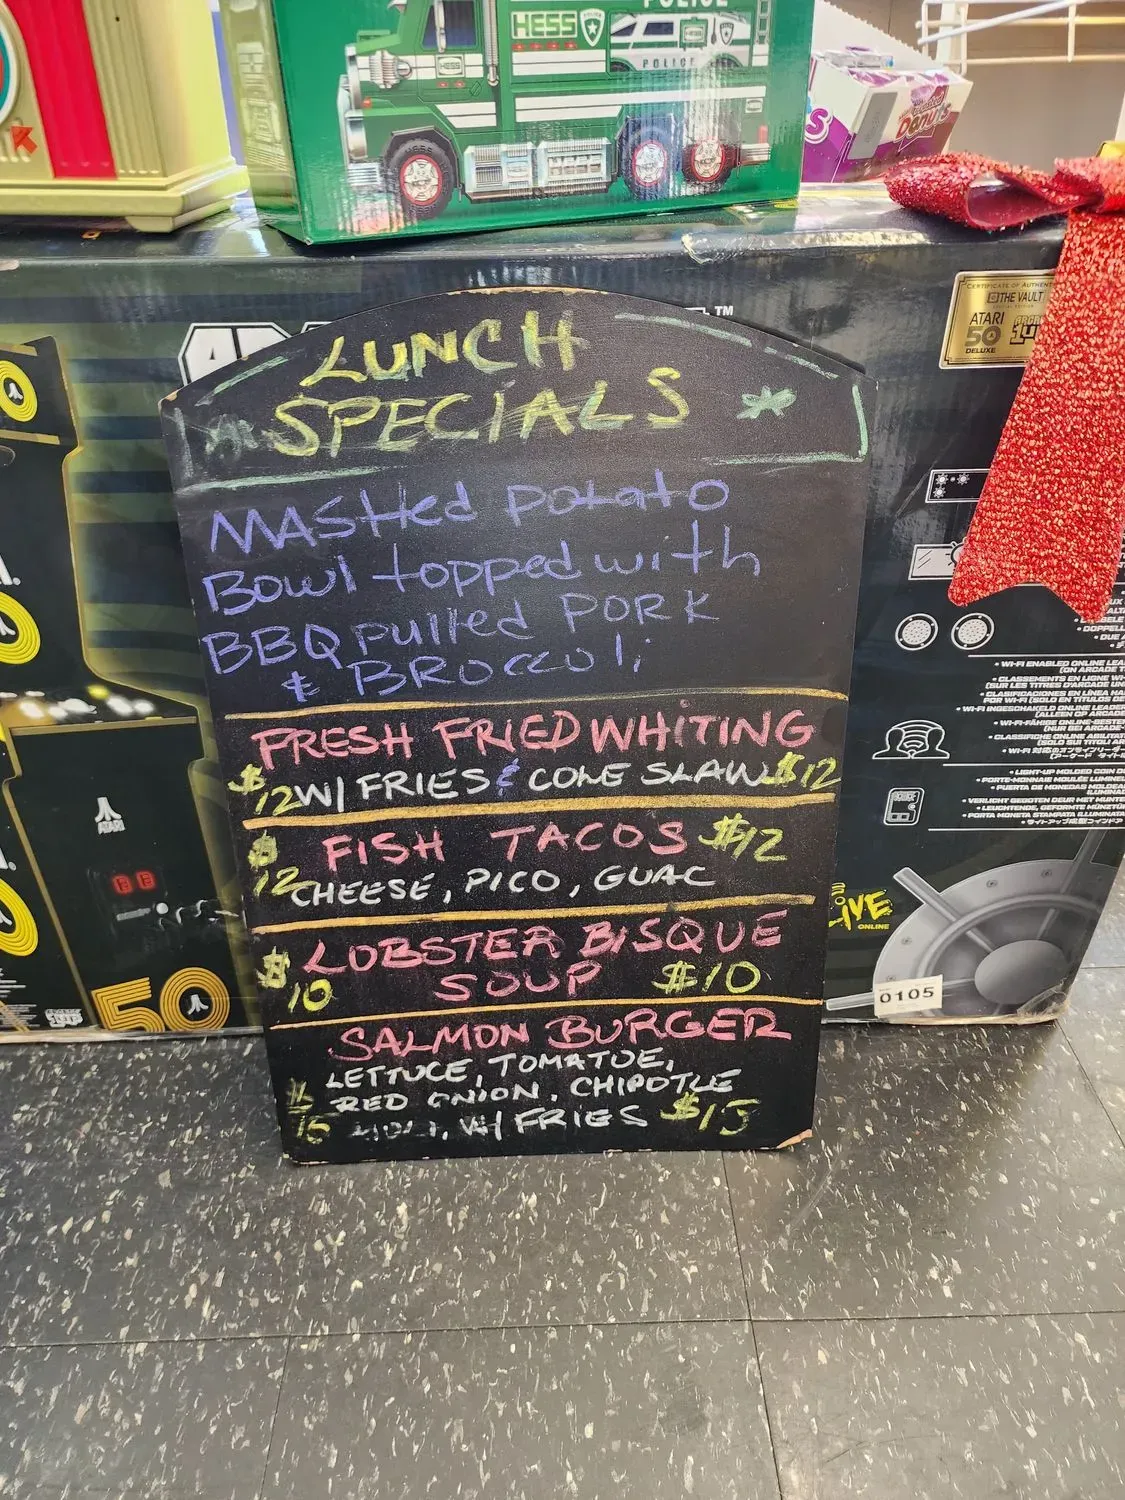 POLICE
HESS
POLICE
HESS
Donuts
™
CERTIFICATE OF AUTHENT
THE VAULT
ATARI
50
DELUXE
LUNCH
SPECIALS *
MASHed potato
Bowl topped with
BBQ pulled PORK
& BROCColi
FRESH FRIED WHITING
$12 W/ FRIES & COLE SLAW $12
FISH TACOS $12
$12 CHEESE, PICO, GUAC
$10 LOBSTER BISQUE
SOUP $10
SALMON BURGER
LETTUCE, TOMATOE,
RED ONION, CHIPOTLE
$15 W/ FRIES $15
• WI-FI ENABLED ONLINE LEA
• LIGHT-UP MOLDED COIN D
LIVE
ONLINE
0105
ATARI
50